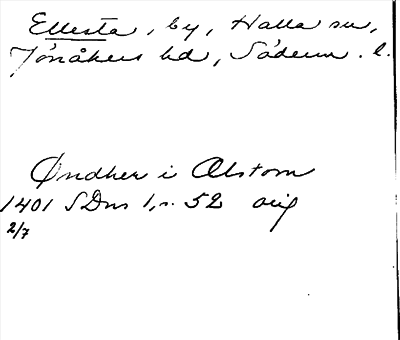 Ellesta, by, Halla sn,
Jönåkers hd, Söderm. l.
Øndher i Alstom
1401 SDns 1, s. 52 orig
2/7